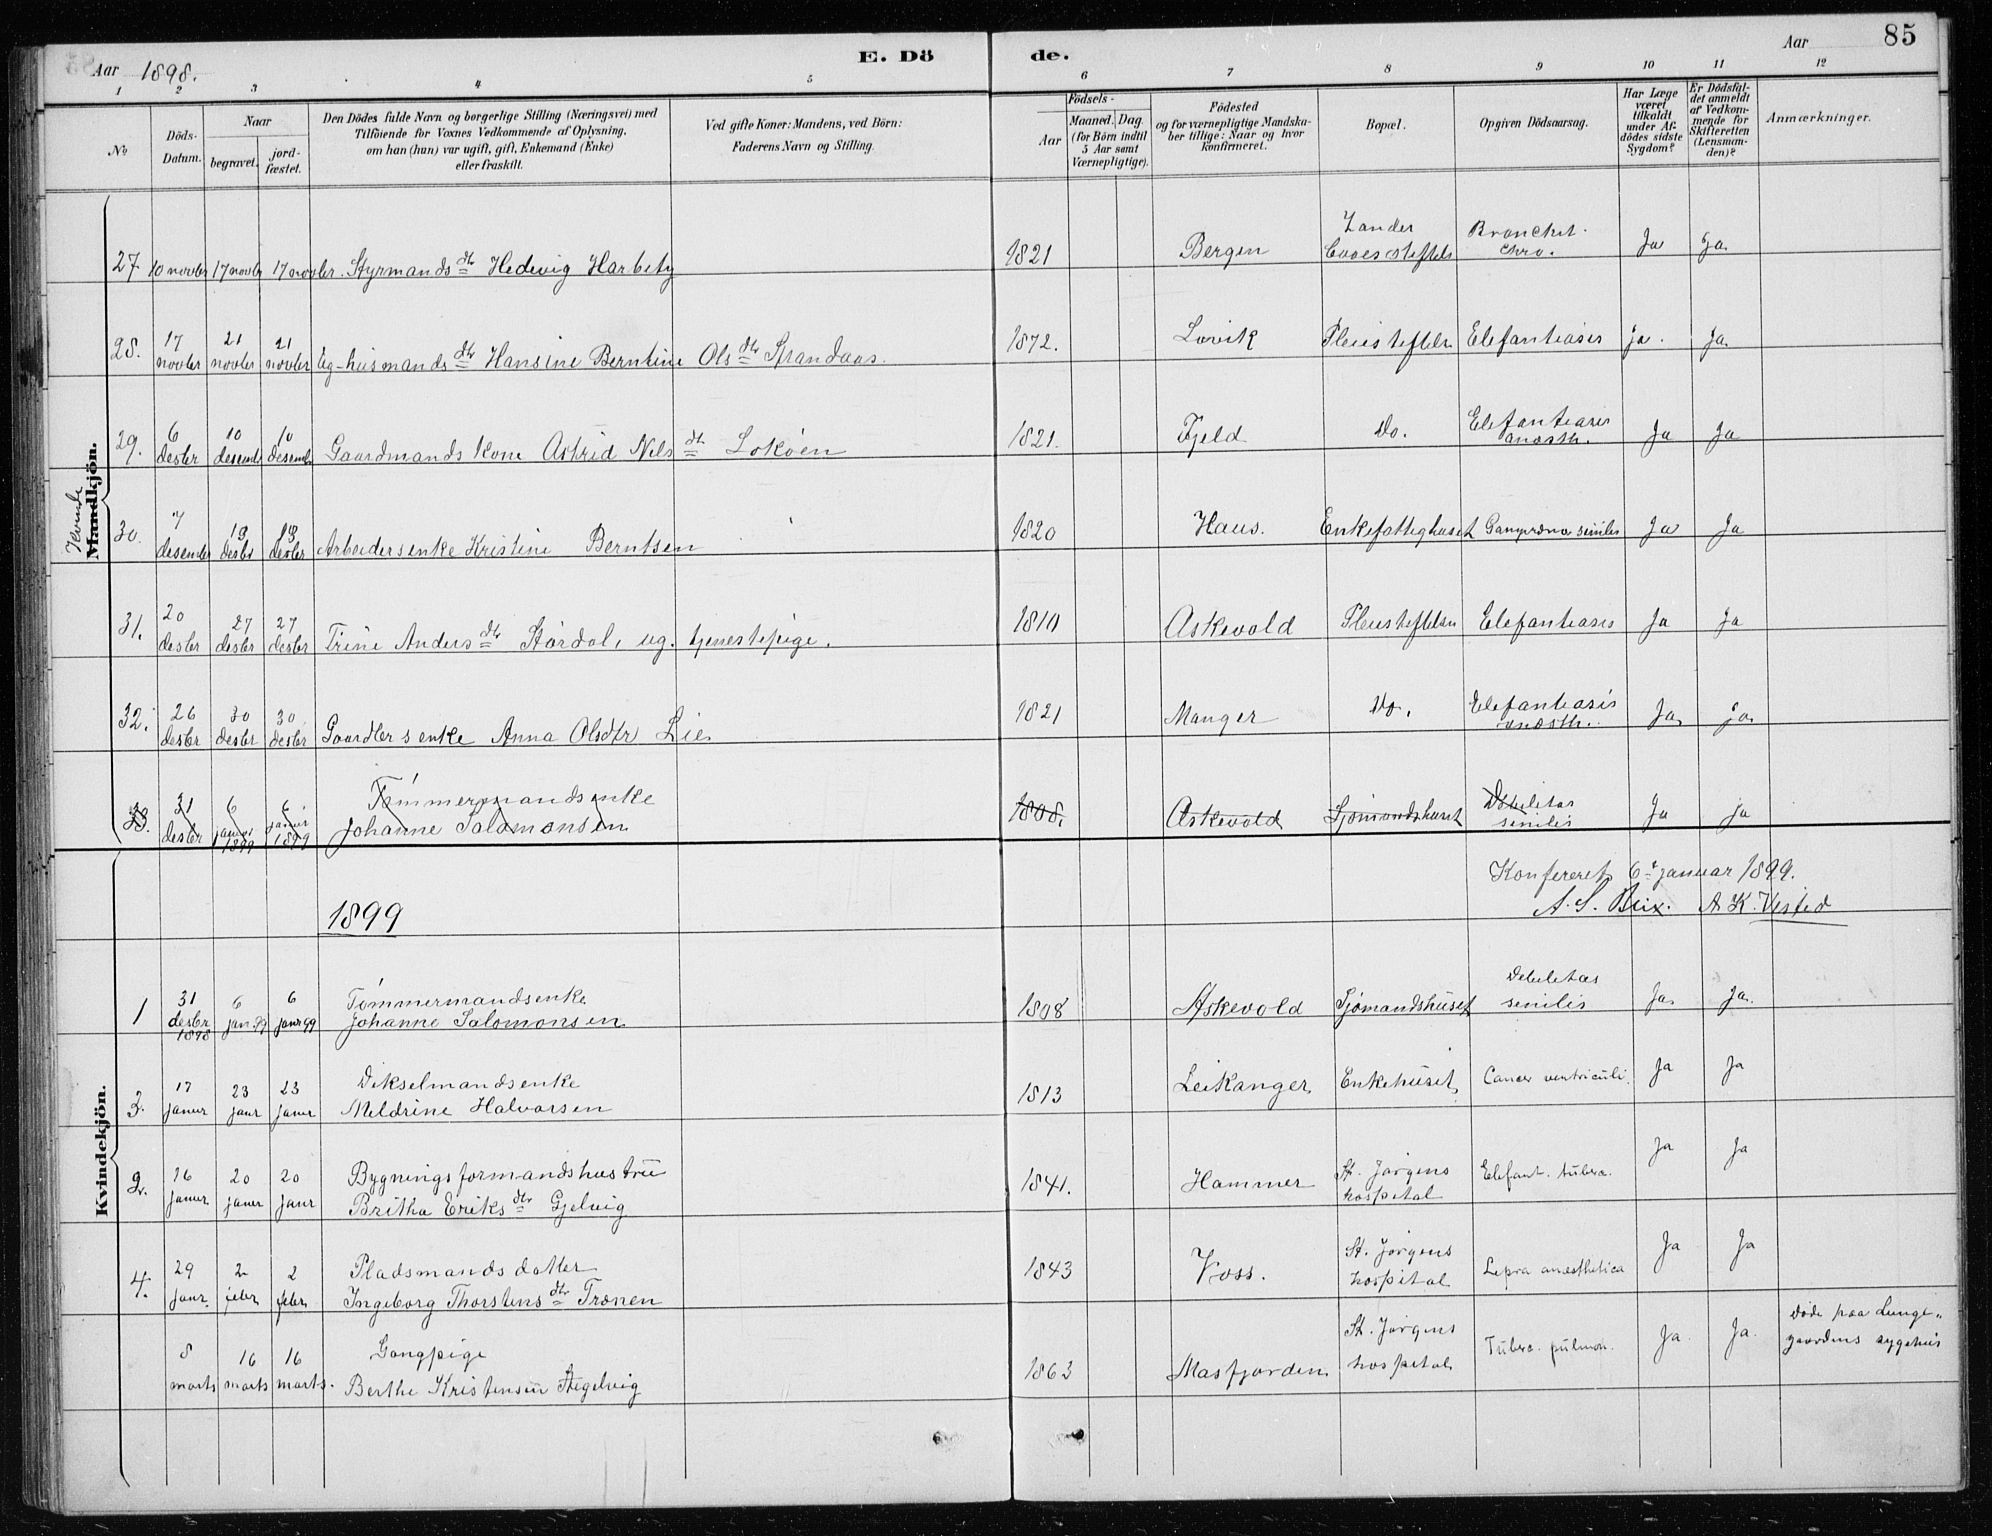 Aar 1898. E. Dö de. Aar 85
1 2 3 4 5 6 7 8 9 10 11 12
No
Döds-Datum.
Naar
begravet.
jord-fæstet.
Den Dödes fulde Navn og borgerlige Stilling (Næringsvei) med
Tilföiende for Voxnes Vedkommende af Oplysning,
om han (hun) var ugift, gift, Enkemand (Enke)
eller fraskilt.
Ved gifte Koner: Mandens, ved Börn:
Faderens Navn og Stilling.
Födsels-
Aar
Maaned. Dag.
(for Börn indtil
5 Aar samt
Værnepligtige).
Födested
og for værnepligtige Mandska-
ber tillige: Naar og hvor
konfirmeret.
Bopæl.
Opgiven Dödsaarsag.
Har Læge
været
tilkaldt
under Af-
dödes sidste
Sygdom?
Er Dödsfal-
det anmeldt
af Vedkom-
mende for
Skifteretten
(Lensman-
den)?
Anmærkninger.
Kvinde
Mandkjön.
27. 10 novbr 17 novbr 17 novbr. Styrmandsdtr Hedevig Harbitz 1821 Bergen Zander Caaes stiftels Bronchit. chro. Ja Ja
28. 17 novber 21 novber 21 novber Ug-husmandsdtr Hansine Berntine Olsdtr Strandaas. 1872. Lavik Pleiestiftelsn Elefantiasis Ja. Ja
29. 6 desbr 10 desembr 10 desembr Gaardmands kone Astrid Nelsdtr Lokøen 1821. Fjeld Do. Elefantiasis anæsth. Ja Ja
30. 7 desember 13 desbr 13 desbr Arbeidersenke Kristine Berntsen 1820 Haus. Enkefattighuset Gangræna senilis Ja Ja
31. 20 desbr 27 desbr 27 desbr Trine Andersdtr Stórdal, ug. tjenestepige. 1810 Askevold Pleiestiftelsn Elefantiasis Ja Ja
32. 26 desbr 30 desbr 30 desbr Gaardbrs enke Anna Olsdtr Lie 1821 Manger Do. Elefantiasis anæsth. Ja Ja
33. 31 desbr 6 januar 1899 6 januar 1899 Tømmermandsenke Johanne Salomonsen 1808. Askevold Sjømandshuset Debilitas senilis Ja ja
Konfereret 6te januar 1899.
A. S. Brix. A K. Vested
1899
Kvindekjön.
1 31 desbr 1898 6 jan. 99 6 janr 99 Tømmermandsenke Johanne Salomonsen 1808 Askevold Sjømandshuset Debilitas senilis Ja Ja.
3. 17 janur 23 janr 23 janur Dikselmandsenke Meldrine Halvorsen 1813 Leikanger Enkehuset Cancer ventriculi. Ja Ja
2. 16 janur 20 janur 20 janr Bygningsformandshustru Britha Eriksdtr Gjelvig 1841. Hammer St. Jørgens hospital Elefant. tuberc. Ja Ja
4. 29 janr. 2 febr 2 febr Pladsmandsdatter Ingeborg Thorstensdtr Trænen 1843 Voss. St. Jørgens hospital Lepra anæsthetica Ja Ja
8 marts 16 marts 16 marts. Gangpige Berthe Kristensen Aegelvig 1863 Masfjorden St. Jørgens hospital Tuberc. pulmon. Ja Ja. Døde paa Lunge-
gaardens sygehus